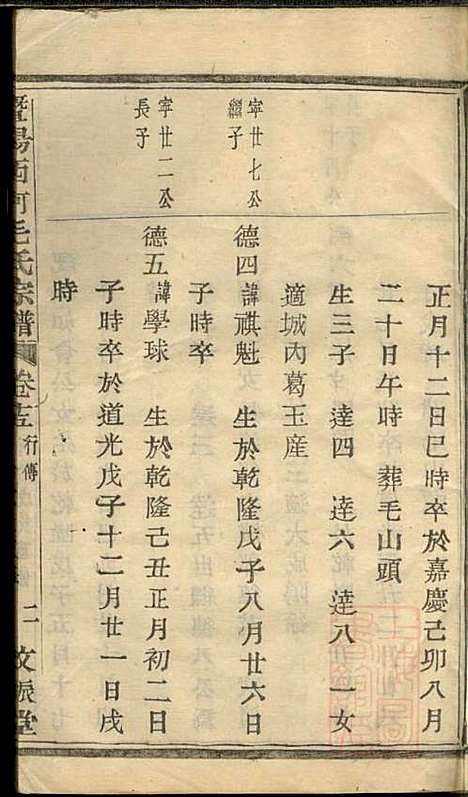 正月十二日巳時卒於嘉慶己卯八月
二十日午時 葬毛山頭
生三子 達四 達六 達八 一女
適城內葛玉産
寕廿七公
繼子
德四 諱祺魁 生於乾隆戊子八月廿六日
子時卒
寕廿二公
長子
德五 諱學球 生於乾隆己丑正月初二日
子時卒於道光戊子十二月廿一日戌
時
暨陽西河毛氏宗譜 卷 行傳 二 文振堂